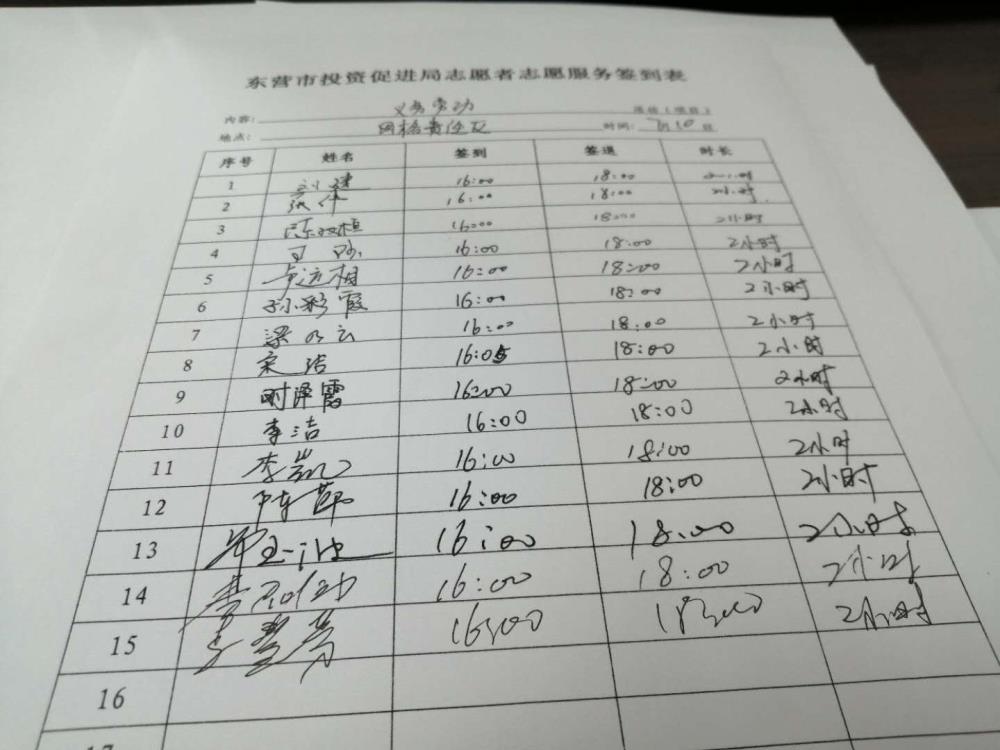 东营市投资促进局志愿者志愿服务签到表
内容: 义务劳动 活动(项目)
地点: 网格责任区 时间: 7月10日
序号 姓名 签到 签退 时长
1 16:00 18:00 2小时
2 张伟 16:00 18:00 2小时
3 陈双桓 16:00 18:00 2小时
4 16:00 18:00 2小时
5 16:00 18:00 2小时
6 孙彩霞 16:00 18:00 2小时
7 梁乃云 16:00 18:00 2小时
8 宋洁 16:05 18:00 2小时
9 时泽霞 16:00 18:00 2小时
10 李洁 16:00 18:00 2小时
11 李凯 16:00 18:00 2小时
12 16:00 18:00 2小时
13 16:00 18:00 2小时
14 16:00 18:00 2小时
15 16:00 18:00 2小时
16
17